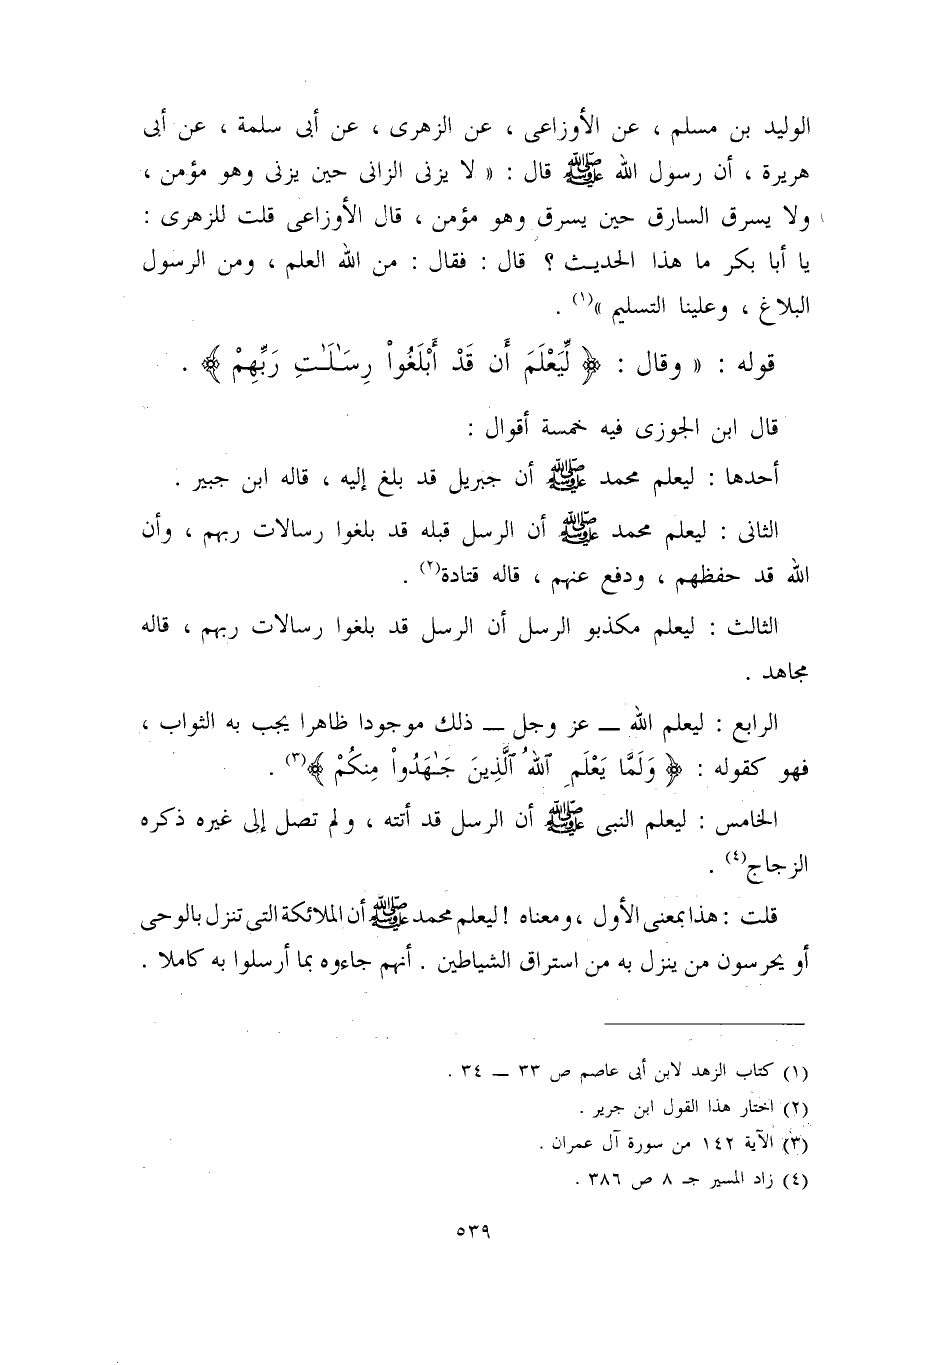 الوليد بن مسلم ، عن الأوزاعى ، عن الزهرى ، عن أبى سلمة ، عن أبى
هريرة ، أن رسول الله ﷺ قال : « لا يزنى الزانى حين يزنى وهو مؤمن ،
ولا يسرق السارق حين يسرق وهو مؤمن ، قال الأوزاعى قلت للزهرى :
يا أبا بكر ما هذا الحديث ؟ قال : فقال : من الله العلم ، ومن الرسول
البلاغ ، وعلينا التسليم »(١) .
قوله : « وقال : ﴿ لِّيَعْلَمَ أَن قَدْ أَبْلَغُواْ رِسَـٰلَـٰتِ رَبِّهِمْ ﴾ .
قال ابن الجوزى فيه خمسة أقوال :
أحدها : ليعلم محمد ﷺ أن جبريل قد بلغ إليه ، قاله ابن جبير .
الثانى : ليعلم محمد ﷺ أن الرسل قبله قد بلغوا رسالات ربهم ، وأن
الله قد حفظهم ، ودفع عنهم ، قاله قتادة(٢) .
الثالث : ليعلم مكذبو الرسل أن الرسل قد بلغوا رسالات ربهم ، قاله
مجاهد .
الرابع : ليعلم الله ــ عز وجل ــ ذلك موجودا ظاهرا يجب به الثواب ،
فهو كقوله : ﴿ وَلَمَّا يَعْلَمِ ٱللَّهُ ٱلَّذِينَ جَـٰهَدُواْ مِنكُمْ ﴾(٣) .
الخامس : ليعلم النبى ﷺ أن الرسل قد أتته ، ولم تصل إلى غيره ذكره
الزجاج(٤) .
قلت : هذا بمعنى الأول ، ومعناه ! ليعلم محمد ﷺ أن الملائكة التى تنزل بالوحى
أو يحرسون من ينزل به من استراق الشياطين . أنهم جاءوه بما أرسلوا به كاملا .
(١) كتاب الزهد لابن أبى عاصم ص ٣٣ ــ ٣٤ .
(٢) اختار هذا القول ابن جرير .
(٣) الآية ١٤٢ من سورة آل عمران .
(٤) زاد المسير جـ ٨ ص ٣٨٦ .
٥٣٩